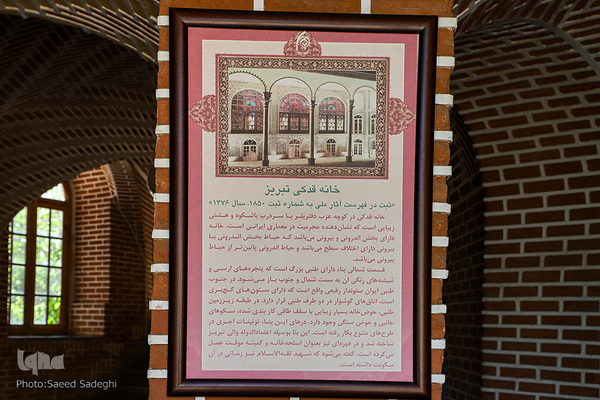 خانه قدکی تبریز
«ثبت در فهرست آثار ملی به شماره ثبت ۱۸۵۰، سال ۱۳۷۶»
خانه قدکی در کوچه عزب دفتریلر با سردرب باشکوه و هشتی
زیبایی است که نشان‌دهنده محرمیت در معماری ایرانی است. خانه
دارای بخش اندرونی و بیرونی می‌باشد کـه حیـاط بخش اندرونـی بـا
بیرونی دارای اختلاف سطح می‌باشد و حیاط اندرونی پائین‌تر از حیاط
بیرونی می‌باشد.
قسمت شمالی بناء دارای طنبی بزرگ است که پنجره‌های ارسـی و
شیشه‌های رنگی آن به سمت شمال و جنوب باز می‌شود. در جنوب
طنبی ایوان ستوندار رفیعی واقع است که دارای ستون‌های گچ‌بری
است. اتاق‌های گوشوار در دو طرف طنبی قرار دارد. در طبقه زیرزمین
طنبی، حوض‌خانه بسیار زیبایی با سقف طاقی کار بندی شده، سکوهای
جانبی و حوض سنگی وجود دارد. درهای این بناء، تزئینات آجری در
طرح‌های متنوع بکار رفته است. این بنا بوسیله اعتمادالدوله والی تبریز
ساخته شد و در دوره‌ای نیز بعنوان اسلحه‌خانه و کمیته موقت عمل
می‌کرده است. گفته می‌شود که شهید ثقه‌الاسلام نیز زمانی در آن
سکونت داشته است.
iqna
Photo:Saeed Sadeghi